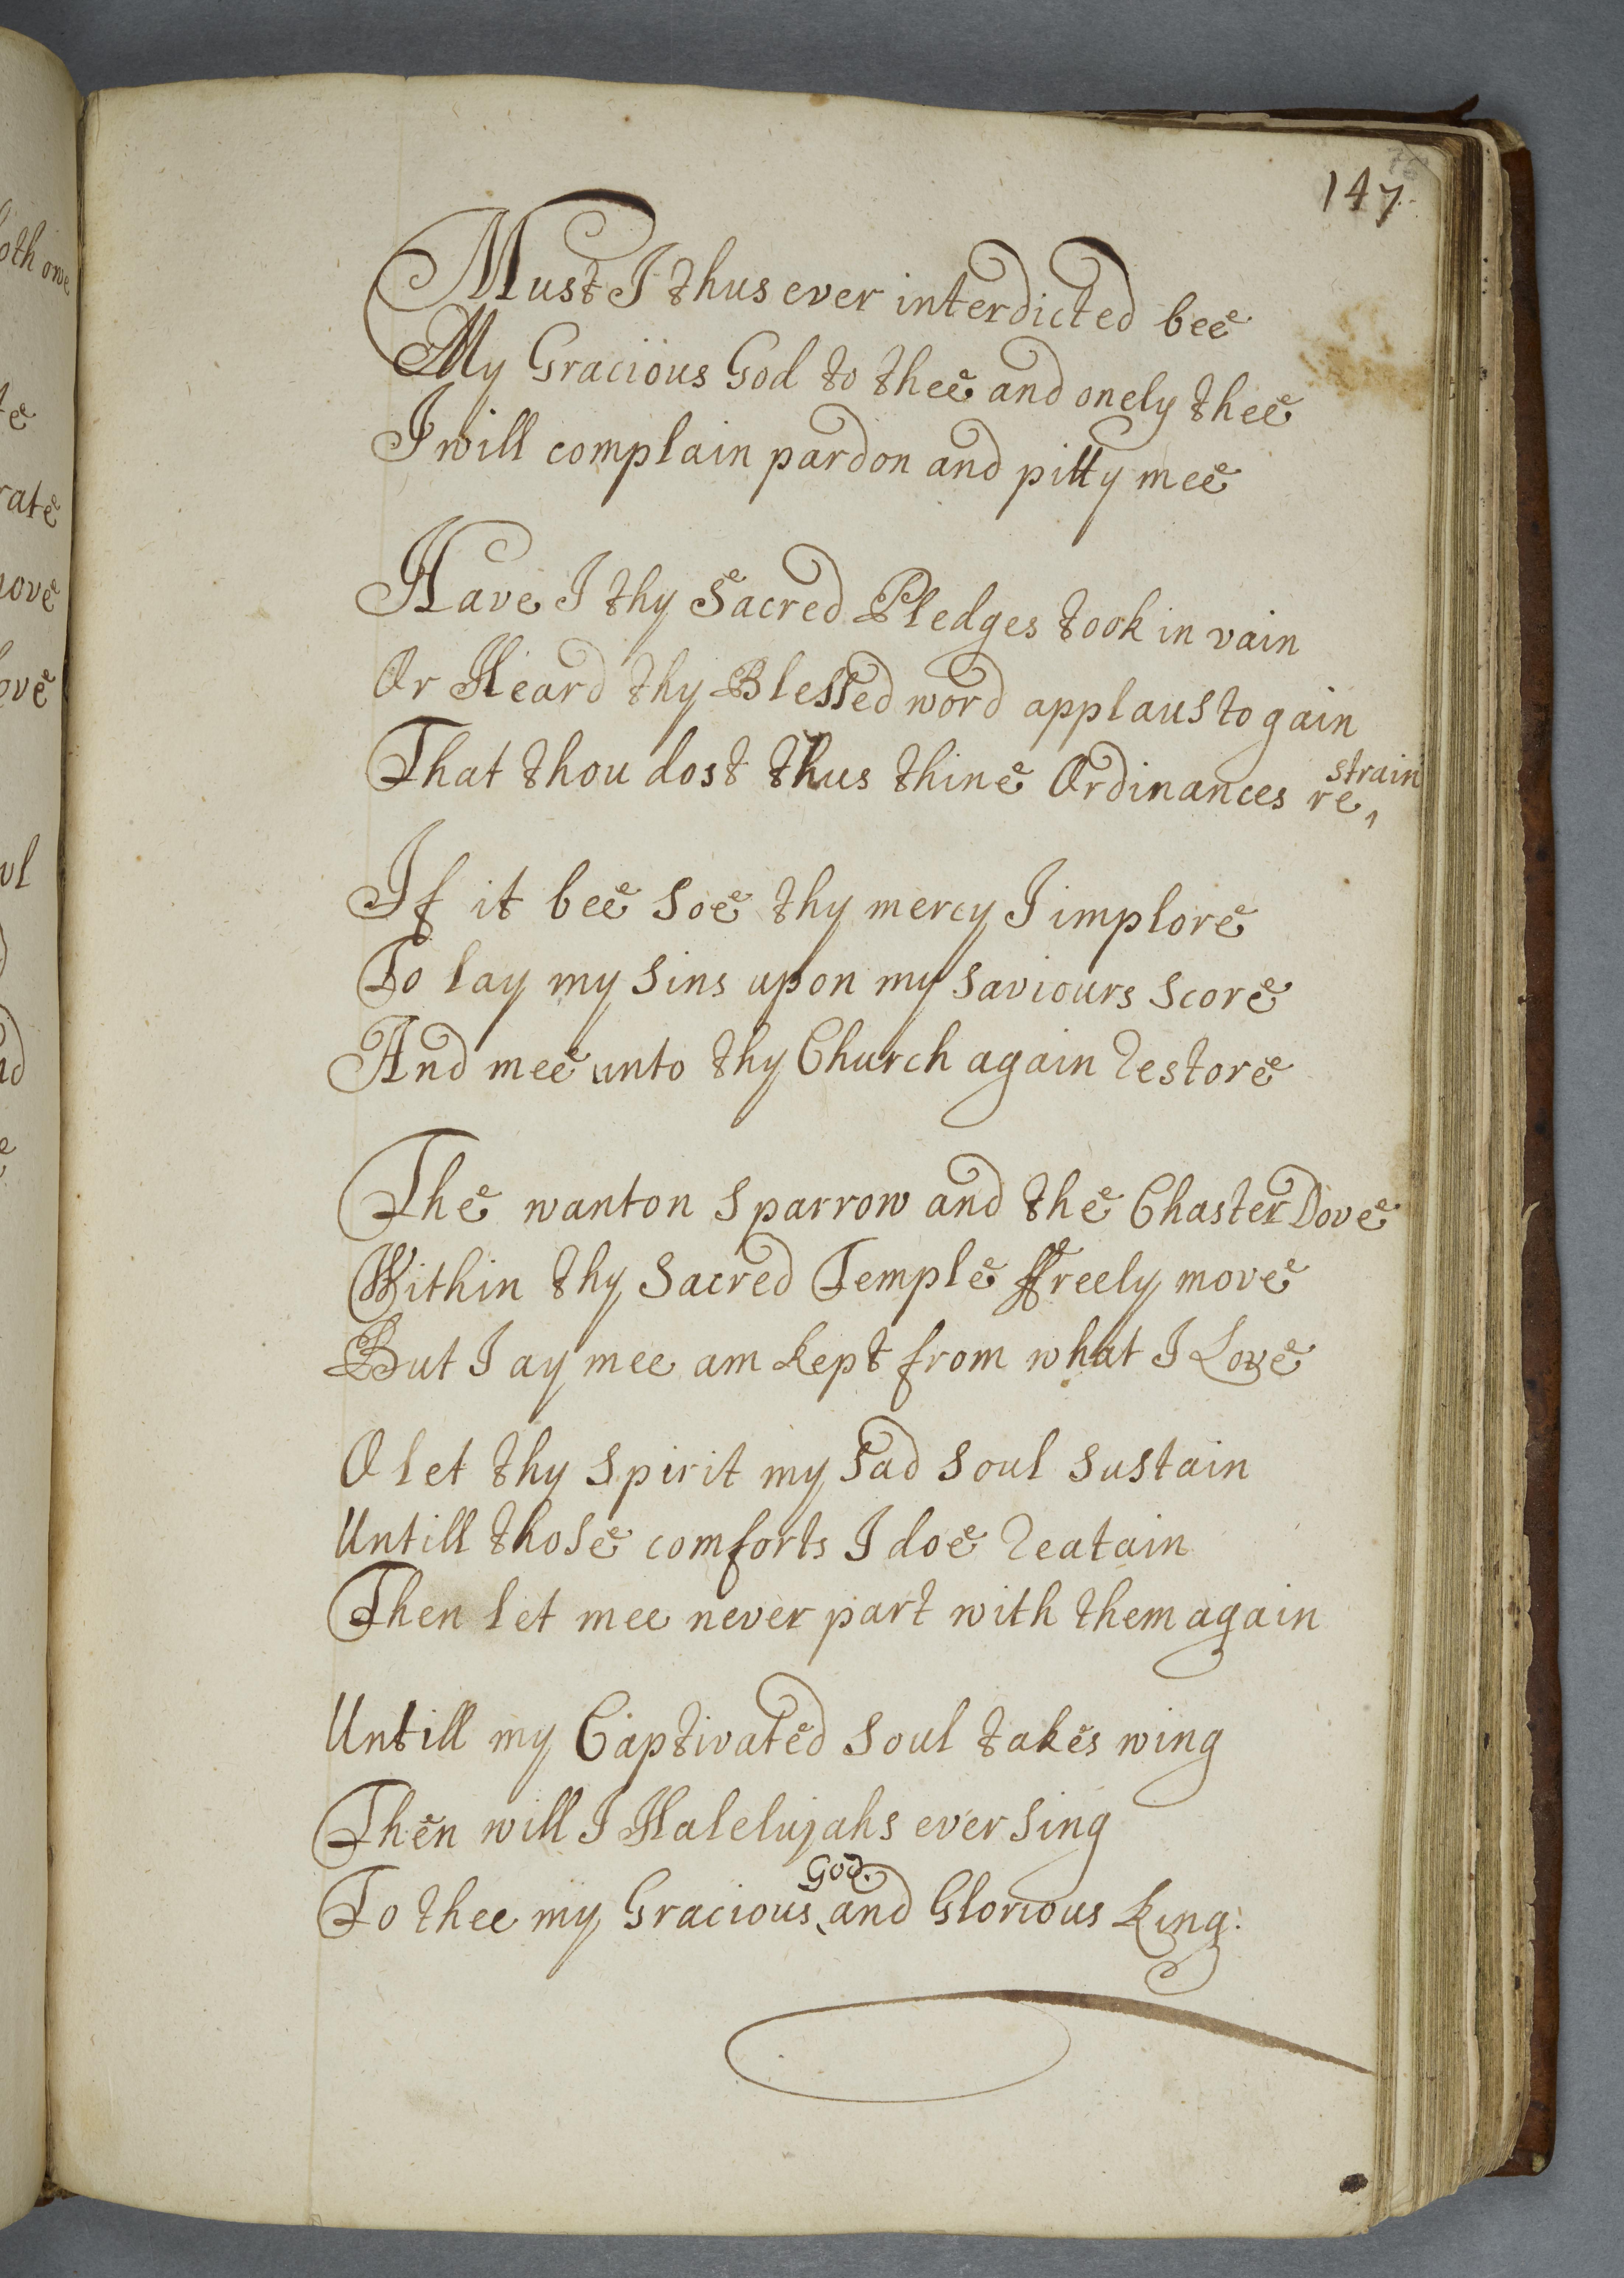 147
Must I thus ever interdicted bee
My Gracious God to thee and onely thee
I will complain pardon and pitty mee
Have I thy Sacred Pledges took in vain
Or Heard thy Blessed word applaus to gain
That thou dost thus thine Ordinances restrain
If it bee soe thy mercy I implore
To lay my sins upon my saviours score
And mee unto thy Church again Restore
The wanton Sparrow and the Chaster Dove
Within thy Sacred Temple ffreely move
But I ay mee am kept from what I Love
O let thy Spirit my sad soul sustain
Untill those comforts I doe Reatain
Then let mee never part with them again
Untill my Captivated soul takes wing
Then will I Halelujahs ever sing
To thee my Gracious God and Glorious King.
oth owe
te
rate
ove
ove
ul
nd
e